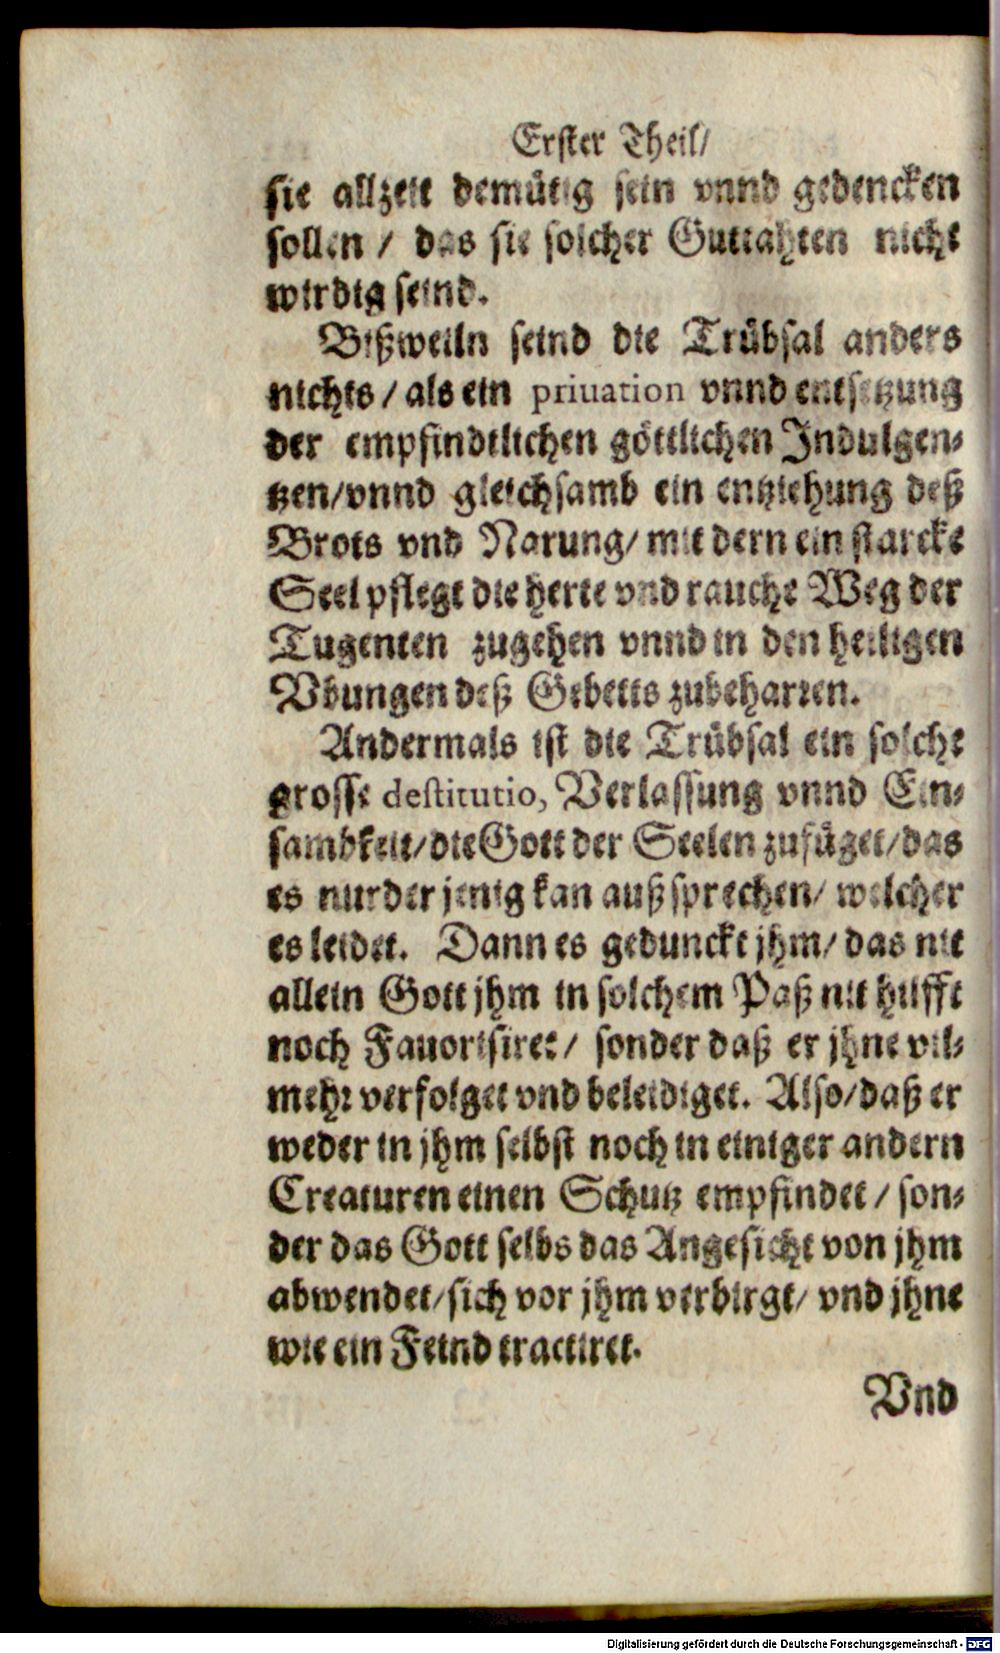 Erster Theil/
sie allzeit demütig sein vnnd gedencken
sollen / das sie solcher Guttahten nicht
wirdig seind.
Bißweiln seind die Trübsal anders
nichts / als ein priuation vnnd entsetzung
der empfindtlichen göttlichen Indulgen-
tzen/vnnd gleichsamb ein entziehung deß
Brots vnd Narung/ mit dern ein starcke
Seel pflegt die herte vnd rauche Weg der
Tugenten zugehen vnnd in den heiligen
Vbungen deß Gebetts zubeharren.
Andermals ist die Trübsal ein solche
grosse destitutio, Verlassung vnnd Ein-
sambkeit/die Gott der Seelen zufüget/das
es nur der jenig kan außsprechen/ welcher
es leidet. Dann es gedunckt jhm/ das nit
allein Gott jhm in solchem Paß nit hilfft
noch Fauorisiret / sonder daß er jhne vil-
mehr verfolget vnd beleidiget. Also/daß er
weder in jhm selbst noch in einiger andern
Creaturen einen Schutz empfindet / son-
der das Gott selbs das Angesicht von jhm
abwendet/sich vor jhm verbirgt/ vnd jhne
wie ein Feind tractiret.
Vnd
Digitalisierung gefördert durch die Deutsche Forschungsgemeinschaft - DFG